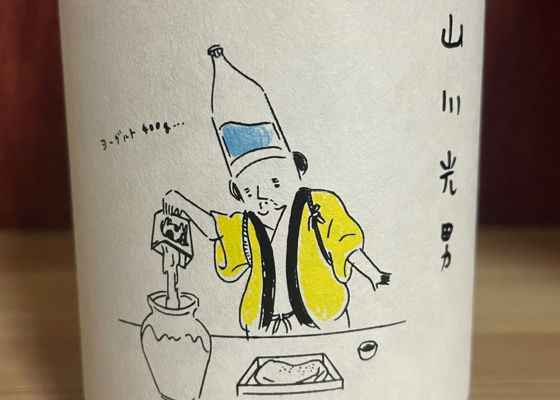 山川光男
ヨーグルト 400g...